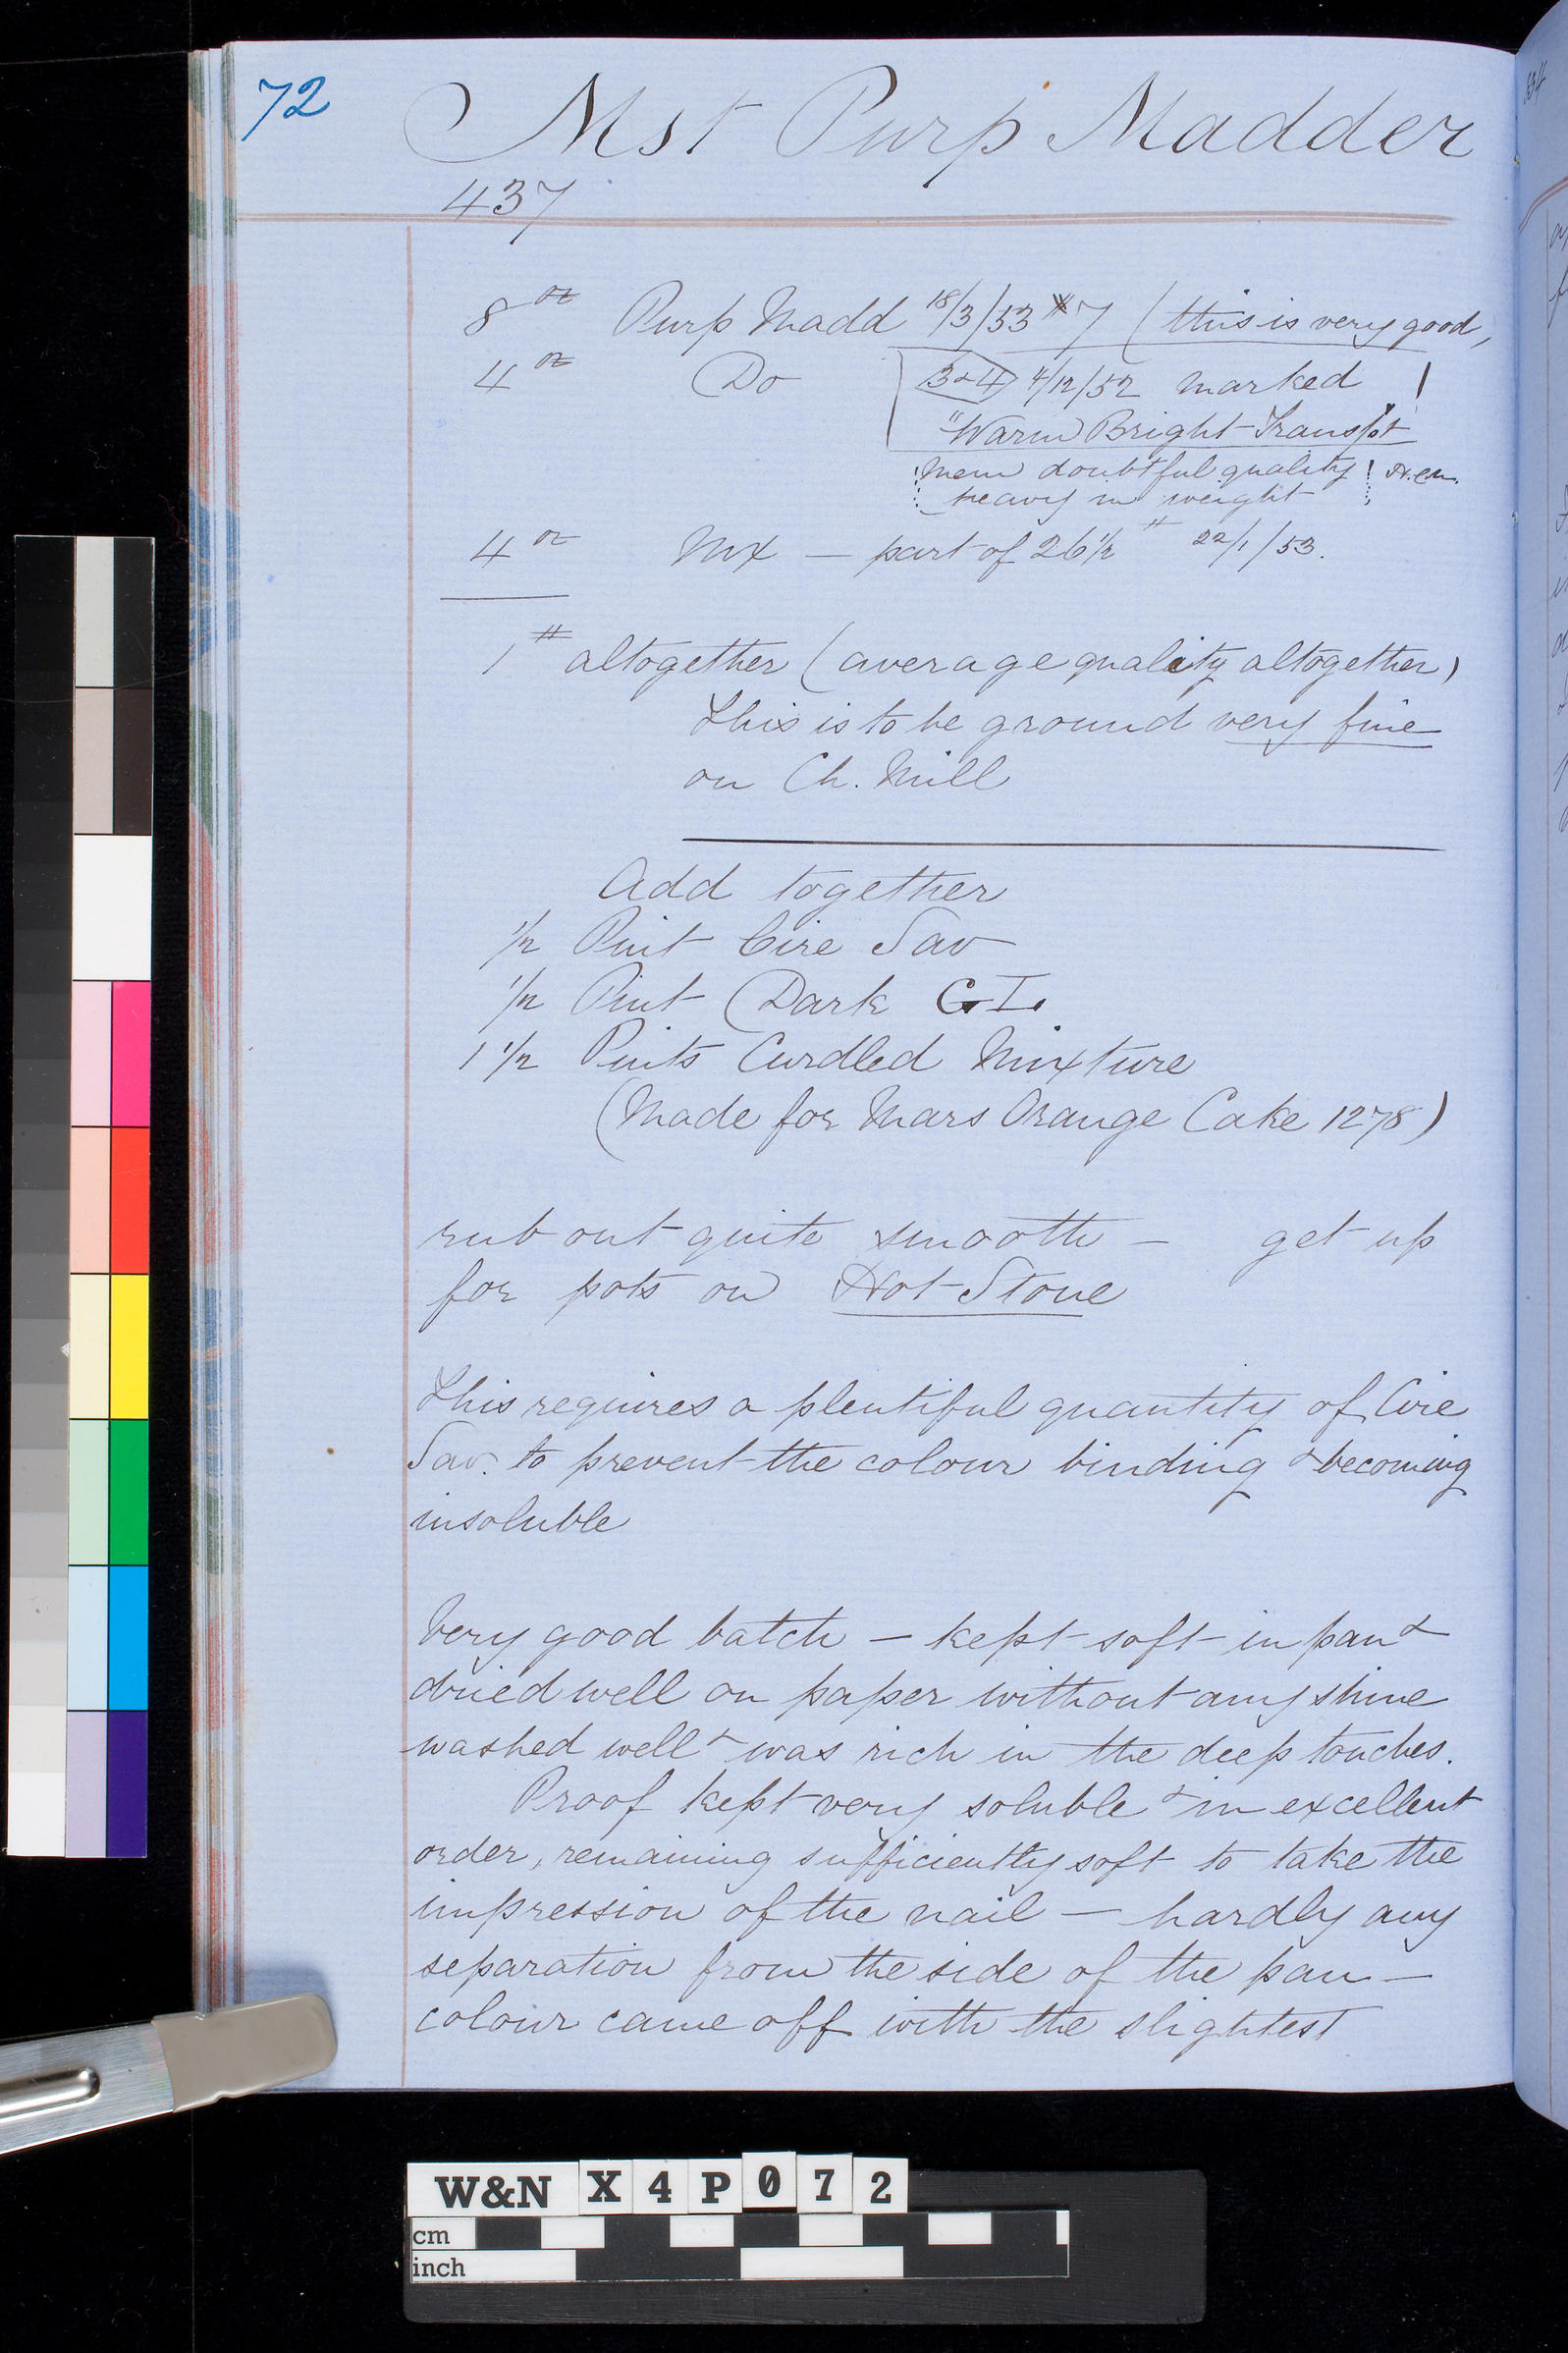 72
Mst Purp Madder
437
8 oz Purp Madd 18/3/53 # 7 (this is very good,
4 oz Do 3 & 4 4/12/52 marked !
"Warm Bright Transpt
Mem doubtful quality ! H.C.N.
heavy in weight
4 oz Mx — part of 26 1/2 # 22/1/53.
1 # altogether (average quality altogether)
This is to be ground very fine
on Ch. Mill
Add together
1/2 Pint Cire Sav
1/2 Pint Dark G I.
1 1/2 Pints Curdled Mixture
(Made for Mars Orange Cake 1278)
rub out quite smooth — get up
for pots on Hot Stone
This requires a plentiful quantity of Cire
Sav. to prevent the colour binding & becoming
insoluble
Very good batch — kept soft in pan &
dried well on paper without any shine
washed well & was rich in the deep touches.
Proof kept very soluble & in excellent
order, remaining sufficiently soft to take the
impression of the nail — hardly any
separation from the side of the pan —
colour came off with the slightest
W&N X4P072
cm
inch